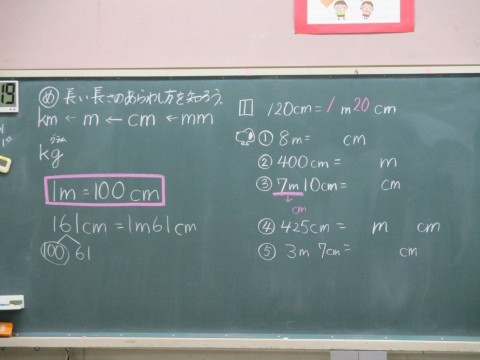 19
め 長い長さのあらわし方を知ろう。
km ← m ← cm ← mm
グラム
kg
1m=100cm
161cm=1m61cm
100 61
1 120cm=1m20cm
① 8m= cm
② 400cm= m
③ 7m10cm= cm
↓
cm
④ 425cm= m cm
⑤ 3m 7cm= cm